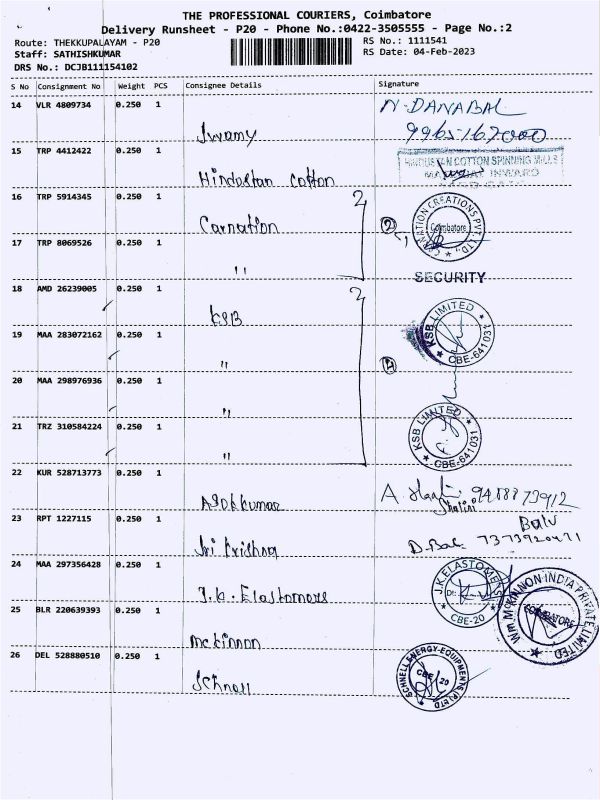 THE PROFESSIONAL COURIERS, Coimbatore
Delivery Runsheet - P20 - Phone No.:0422-3505555 - Page No.:2
Route: THEKKUPALAYAM - P20
RS No.: 1111541
Staff: SATHISHKUMAR
RS Date: 04-Feb-2023
DRS No.: DCJB111154102
S No Consignment No Weight PCS Consignee Details Signature
14 VLR 4809734 0.250 1
N. DANABAL
Swamy
15 TRP 4412422 0.250 1
HINDUSTAN COTTON SPINNING MILLS
Hindustan Cotton
16 TRP 5914345 0.250 1
Carnation
CARNATION CREATIONS PVT. LTD.
Coimbatore
2
17 TRP 8069526 0.250 1
"
SECURITY
18 AMD 26239005 0.250 1
KSB
KSB LIMITED
CBE-641031
19 MAA 283072162 0.250 1
"
4
20 MAA 298976936 0.250 1
"
21 TRZ 310584224 0.250 1
KSB LIMITED
CBE-641031
"
22 KUR 528713773 0.250 1
Asokkumar
Shalini
23 RPT 1227115 0.250 1
Balu
Sri Krishna
24 MAA 297356428 0.250 1
J.K. Elastomers
J.K.ELASTOMERS
CBE-20
25 BLR 220639393 0.250 1
Mckinnon
Wm MCKINNON INDIA PRIVATE LIMITED
COIMBATORE
26 DEL 528880510 0.250 1
Schnell
SCHNELL ENERGY-EQUIPMENTS (P) LTD
CBE 20